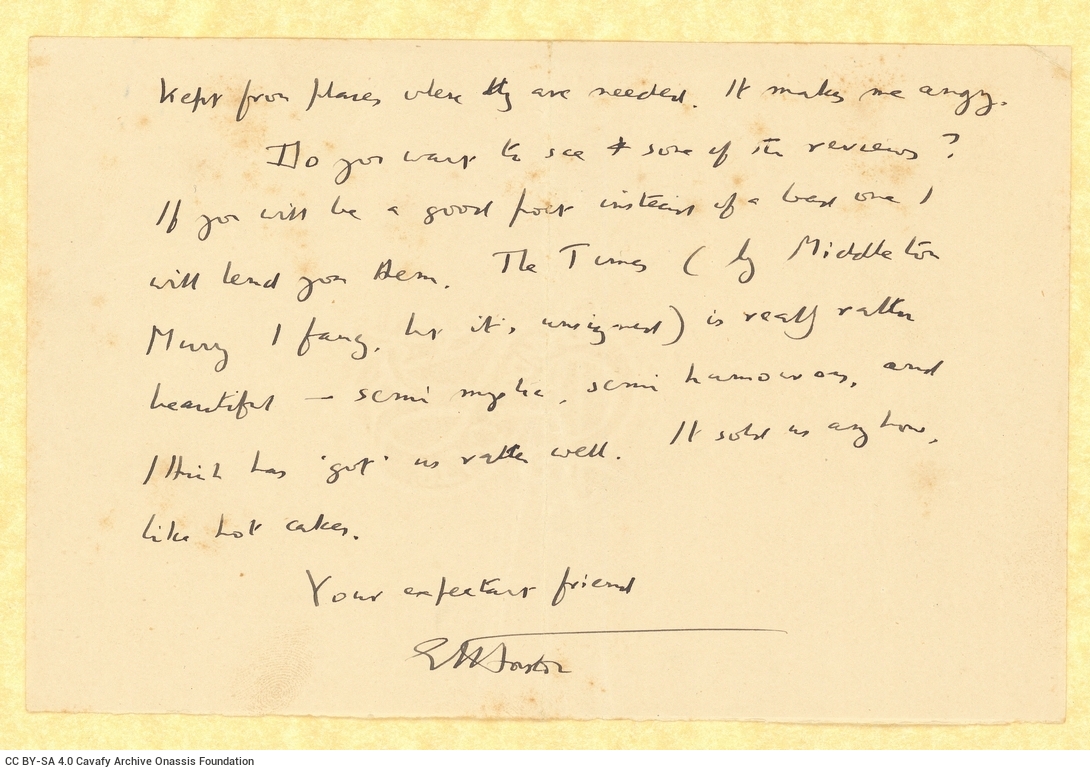 kept from places where they are needed. It makes me angry.
Do you want to see some of the reviews?
If you will be a good poet instead of a bad one I
will lend you them. The Times (by Middleton
Murry I fancy, but it's unsigned) is really rather
beautiful — semi mystic, semi humourous, and
I think has 'got' us rather well. It sold us any how,
like hot cakes.
Your expectant friend
EMForster
CC BY-SA 4.0 Cavafy Archive Onassis Foundation